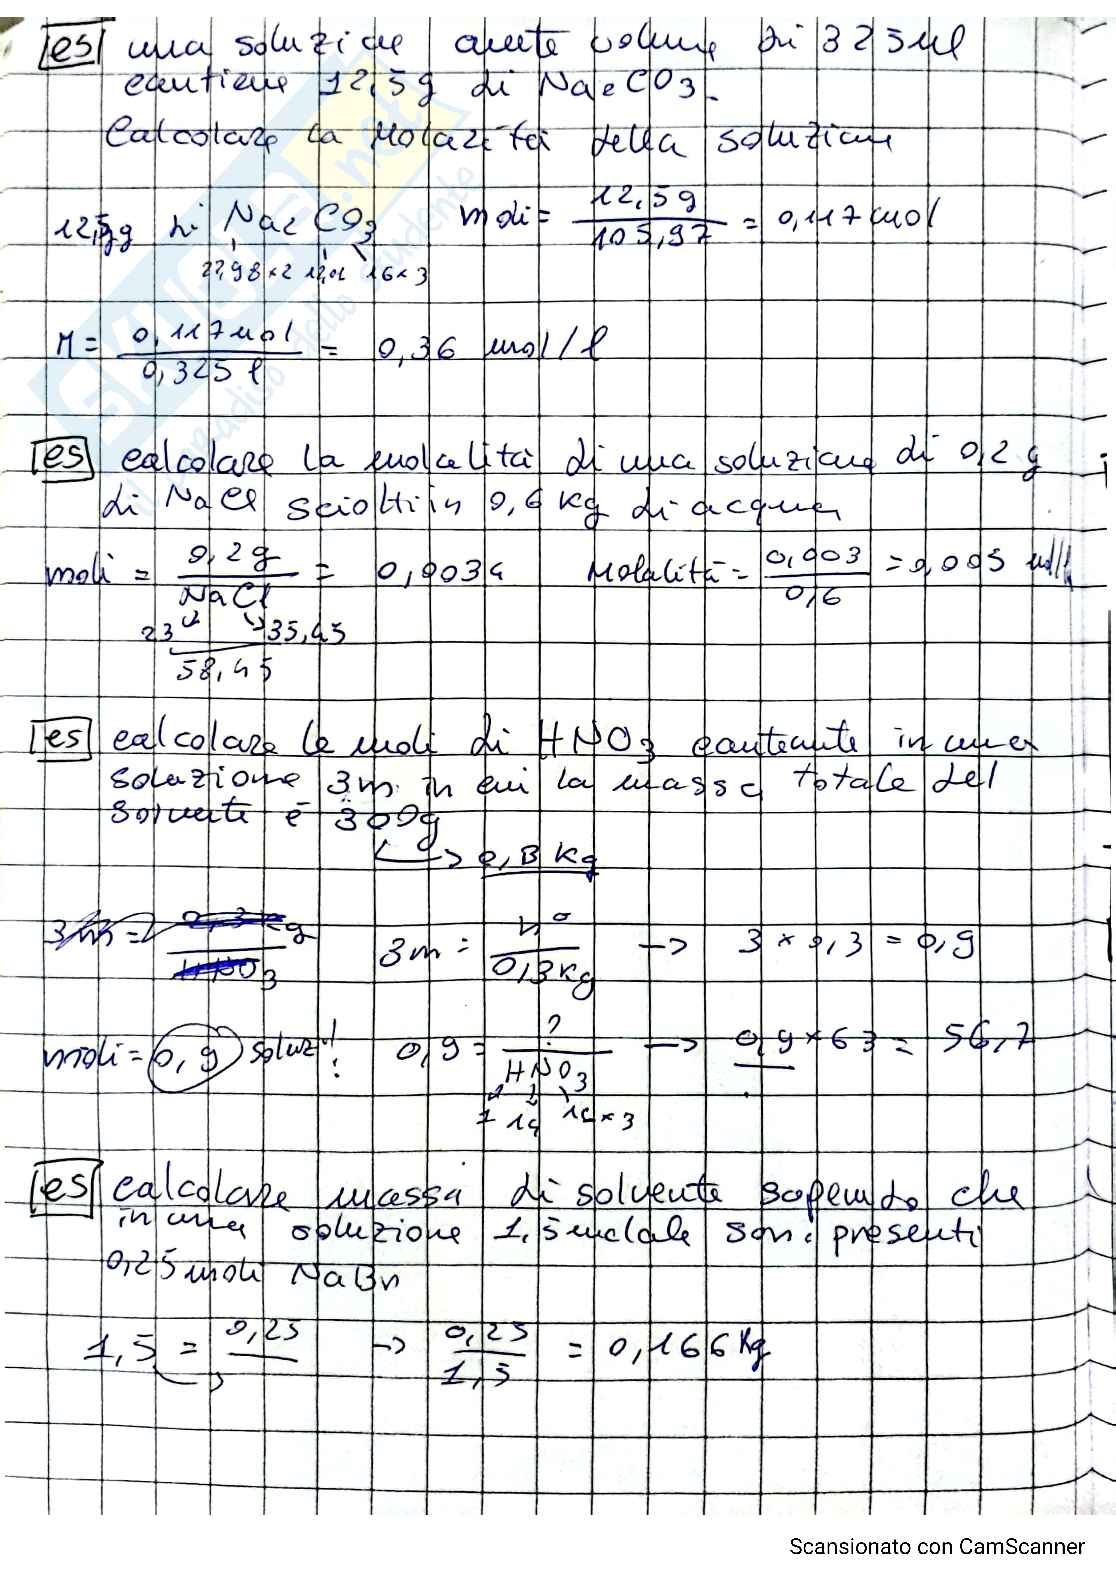 es una soluzione avente volume di 325 ml
contiene 12,5g di Na2CO3.
Calcolare la Molarità della soluzione
12,5g di Na2CO3 moli = 12,5g / 105,97 = 0,117 mol
22,98×2 12,01 16×3
M = 0,117 mol / 0,325 l = 0,36 mol/l
es calcolare la molalità di una soluzione di 0,2 g
di NaCl sciolti in 0,6 kg di acqua
moli = 0,2g / NaCl = 0,0034 Molalità = 0,003 / 0,6 = 0,005
23 35,45
58,45
es calcolare le moli di HNO3 contenute in una
soluzione 3m in cui la massa totale del
solvente è 300g
→ 0,3 kg
3m = 0,3 kg / HNO3 3m = n° / 0,3kg → 3 × 0,3 = 0,9
moli = 0,9 soluz! 0,9 = ? / HNO3 → 0,9 × 63 = 56,7
1 14 16×3
es calcolare massa di solvente sapendo che
in una soluzione 1,5 molale sono presenti
0,25 moli NaBr
1,5 = 0,25 / → 0,25 / 1,5 = 0,166 Kg
SKUOLA.net
il paradiso dello studente
Scansionato con CamScanner